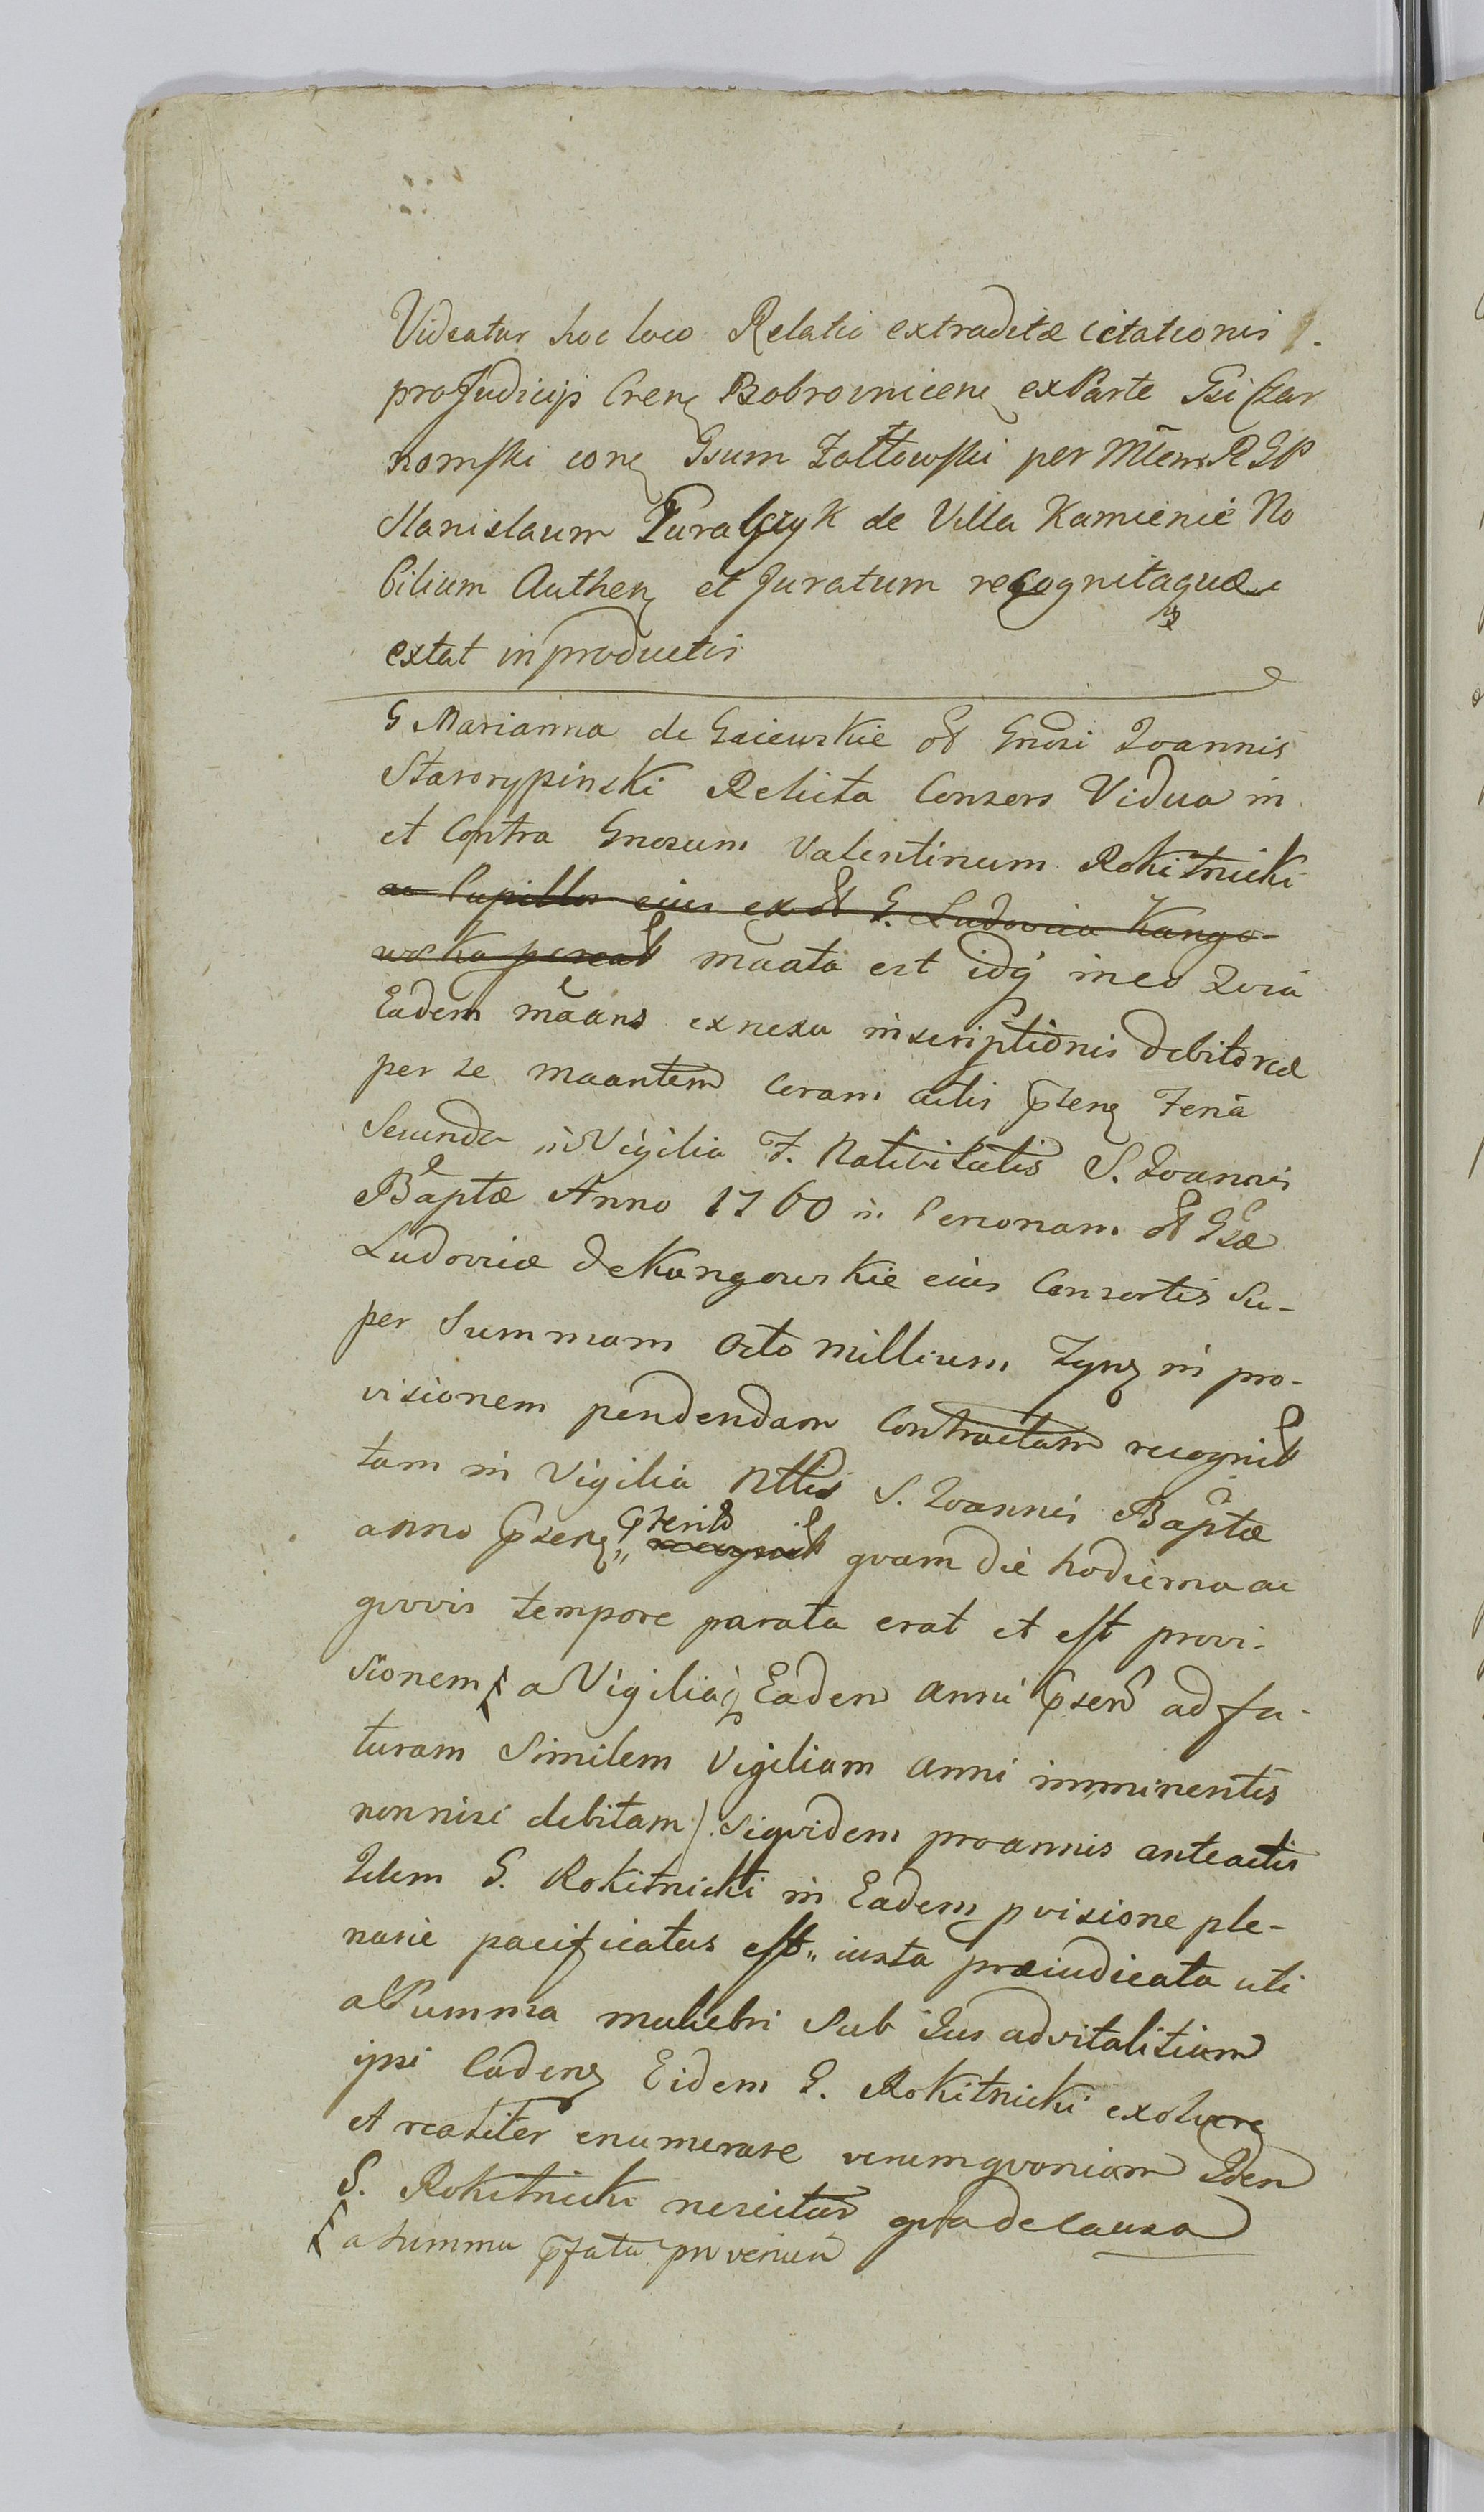 Videatur hoc loco Relatio extraditæ citationis
pro Judicijs Cren Bobrovnicen ex Parte Gsi Czar
nomski con Gsum Zołtowski per Mtem RGP
Stanislaum Turalczyk de Villa Kamienie No
bilium Authen et Juratum recognitaquæ
extat in productis
G Marianna de Gaiewskie olt Gnosi Joannis
Starorypinski Relicta Consors Vidua in
et Contra Gnosum Valentinum Rokitnicki
ac Pupillos eius ex olt G. Ludovica Kango-
wska maata est idq in eo Quia
Eadem maans ex nexu inscriptionis debitoreæ
per se maantem Coram actis pten Feria
Secunda in Vigilia F. Nativitatis S. Joannis
Baptæ Anno 1760 in Personam olt Gsæ
Ludovicæ de Kangowskie eius Consortis Su-
per Summam Octo millium in pro-
visionem pendendam Contractam recognit
tam in Vigilia Nttis S. Joannis Baptæ
anno psen,, pterito recognit quam die hodierna ac
quovis tempore parata erat et est provi-
sionem a Vigilia Eadem anni psent ad fu-
turam Similem Vigiliam anni imminentis
non nisi debitam) Siquidem pro annis anteactis
Idem G. Rokitnicki in Eadem pvisione ple-
narie pacificatus est,, iuxta præiudicata uti
a Summa muliebri Sub Jus advitalitium
ipsi Caden Eidem G. Rokitnicki exolvere
et realiter enumerare verum quoniam Iden
G. Rokitnicki nescitur qua de causa
a Summa pfata provenien